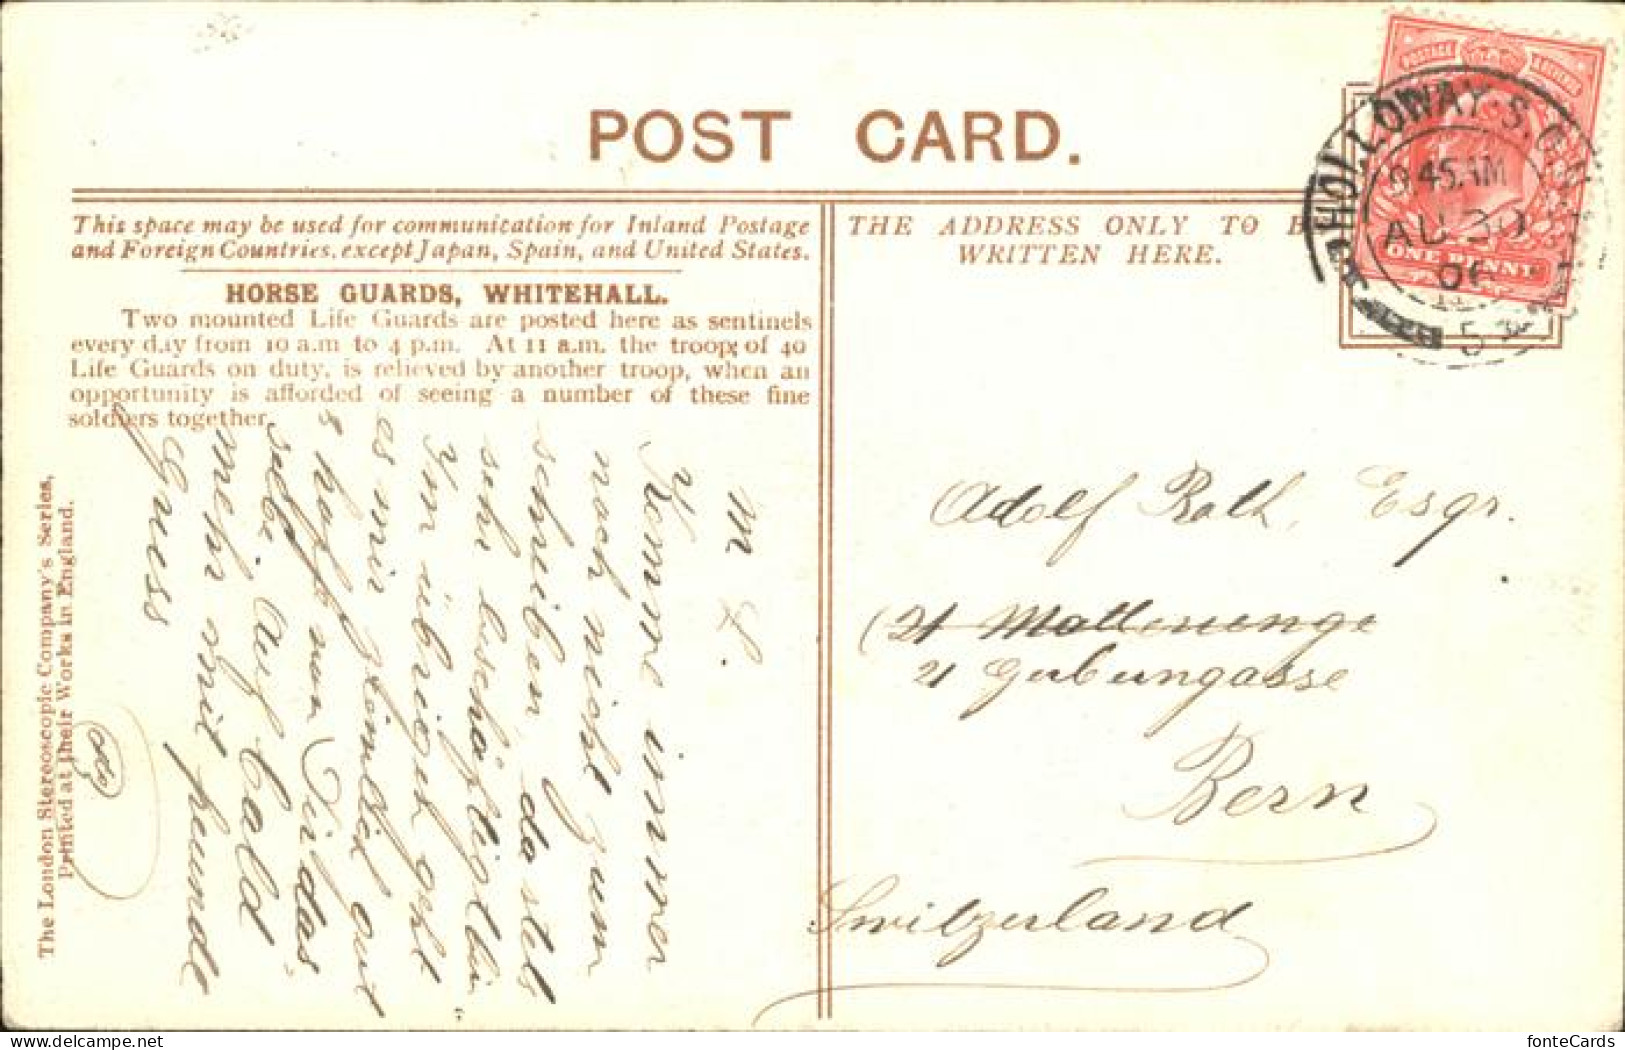 POST CARD.
This space may be used for communication for Inland Postage
and Foreign Countries, except Japan, Spain, and United States.
HORSE GUARDS, WHITEHALL.
Two mounted Life Guards are posted here as sentinels
every day from 10 a.m to 4 p.m. At 11 a.m. the troop of 40
Life Guards on duty, is relieved by another troop, when an
opportunity is afforded of seeing a number of these fine
soldiers together.
The London Stereoscopic Company's Series,
Printed at their Works in England.
M L.
Komme immer
noch nicht zum
schreiben, da stets
sehr beschäftigt bin
Im übrigen geht
es mir ziemlich gut
& hoffe von Dir das
selbe. Auf bald
mehr mit freundl
Gruss
THE ADDRESS ONLY TO B
WRITTEN HERE.
Adolf Roth, Esqr.
(21
21
Bern
Switzerland
POSTAGE
HOLLOWAY. S.O.
9 45 AM
AU 30
06
ONE PENNY
fonteCards